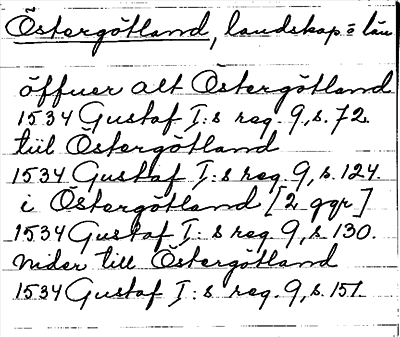 Östergötland, landskap o län
öffuer alt Östergötland
1534 Gustaf I:s reg. 9, s. 72.
tiil Östergötland
1534 Gustaf I:s reg. 9, s. 124.
i Östergötland [2 ggr]
1534 Gustaf I:s reg. 9, s. 130.
nider till Östergötland
1534 Gustaf I:s reg. 9, s. 151.